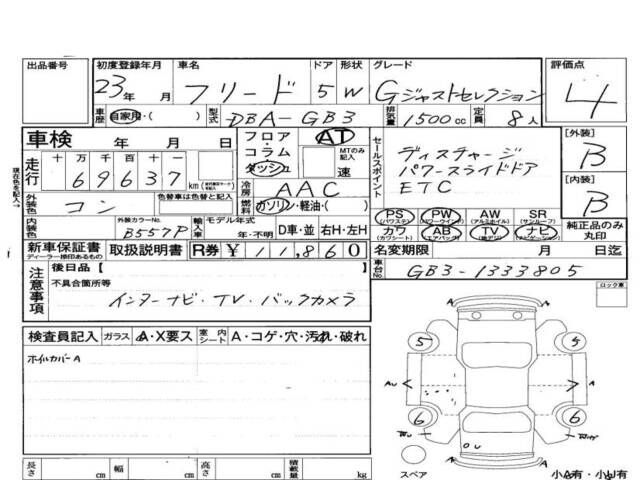 出品番号 初度登録年月 車名 ドア 形状 グレード 評価点
23年 月 フリード 5 W Gジャストセレクション 4
車歴 自家用・( ) 型式 DBA-GB3 排気量 1500cc 定員 8人
車検 年 月 日 フロア・コラム・ダッシュ AT MTのみ記入 速
セールスポイント
ディスチャージ
パワースライドドア
ETC
[外装] B
現在色を記入→
走行 十 万 千 百 十 一
69637 km
冷房 AAC
燃料 ガソリン・軽油・( )
[内装] B
外装色 コン 色替車は色替と記入
内装色 外装カラーNo. B557P 輸入車 モデル年式 年・不明 D車・並 右H・左H
PS (パワステ) PW (パワーウインド) AW (アルミホイル) SR (サンルーフ)
カワ (カワシート) AB (エアバック) TV ナビ (ナビゲーション)
純正品のみ丸印
新車保証書 ディーラー捺印あるもの 取扱説明書 R券 ¥11,860 名変期限 月 日迄
注意事項 後日品【
不具合箇所等
インターナビ・TV・バックカメラ
車台No. GB3-1333805
ロック車
検査員記入 ガラス A・X要ス 室内シート A・コゲ・穴・汚れ・破れ
ホイルカバーA
5 5
A
6 6
スペア
小A有・小U有
長さ cm 幅 cm 高さ cm 積載量 kg